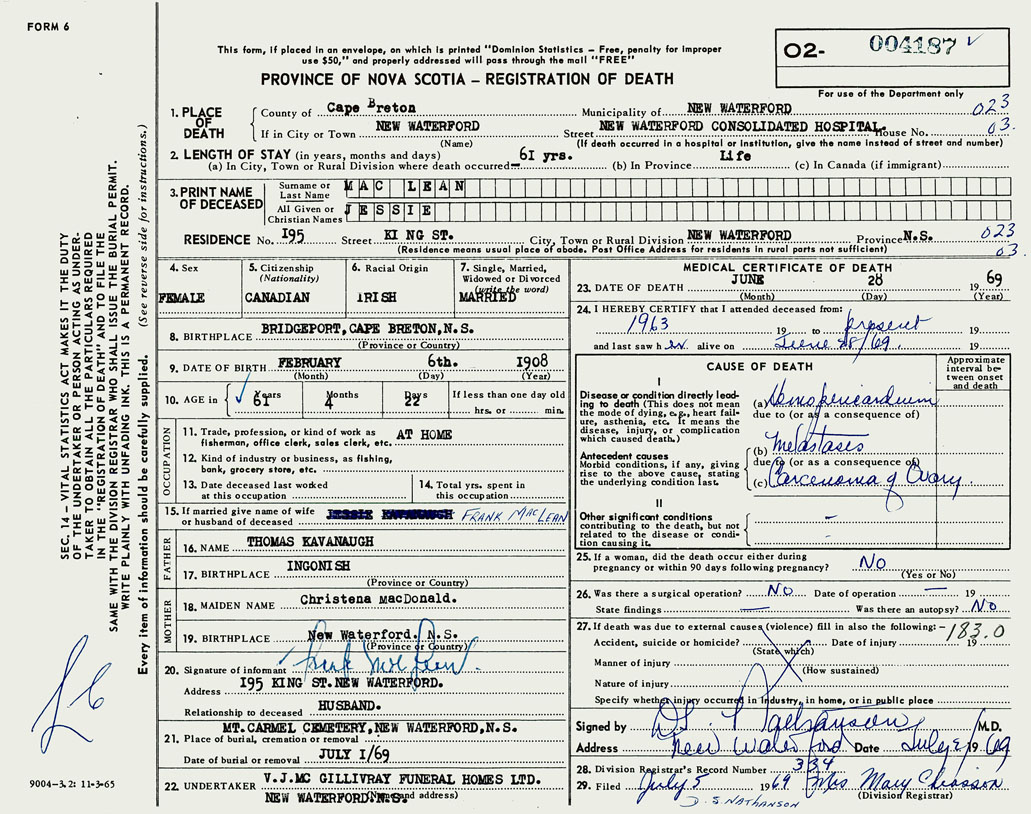 FORM 6
This form, if placed in an envelope, on which is printed "Dominion Statistics – Free, penalty for improper
use $50," and properly addressed will pass through the mail "FREE"
PROVINCE OF NOVA SCOTIA – REGISTRATION OF DEATH
O2- 004187
For use of the Department only
1. PLACE OF DEATH
County of Cape Breton Municipality of NEW WATERFORD 023
If in City or Town NEW WATERFORD Street NEW WATERFORD CONSOLIDATED HOSPITAL. House No. 03.
(Name) (If death occurred in a hospital or Institution, give the name instead of street and number)
2. LENGTH OF STAY (in years, months and days) 61 yrs. Life
(a) In City, Town or Rural Division where death occurred (b) In Province (c) In Canada (if immigrant)
3. PRINT NAME OF DECEASED
Surname or Last Name MAC LEAN
All Given or Christian Names JESSIE
RESIDENCE No. 195 Street KI NG ST. City, Town or Rural Division NEW WATERFORD Province N.S. 023
(Residence means usual place of abode. Post Office Address for residents in rural parts not sufficient) 03.
4. Sex
FEMALE
5. Citizenship (Nationality)
CANADIAN
6. Racial Origin
IRISH
7. Single, Married, Widowed or Divorced (write the word)
MARRIED
8. BIRTHPLACE BRIDGEPORT, CAPE BRETON, N.S.
(Province or Country)
9. DATE OF BIRTH FEBRUARY 6th. 1908
(Month) (Day) (Year)
10. AGE in Years 61 Months 4 Days 22 If less than one day old
hrs. or min.
OCCUPATION
11. Trade, profession, or kind of work as AT HOME
fisherman, office clerk, sales clerk, etc.
12. Kind of industry or business, as fishing,
bank, grocery store, etc.
13. Date deceased last worked
at this occupation
14. Total yrs. spent in
this occupation
15. If married give name of wife
or husband of deceased FRANK MACLEAN
FATHER
16. NAME THOMAS KAVANAUGH
17. BIRTHPLACE INGONISH
(Province or Country)
MOTHER
18. MAIDEN NAME Christena MacDonald.
19. BIRTHPLACE New Waterford. N.S.
(Province or Country)
20. Signature of informant
Address 195 KING ST. NEW WATERFORD.
Relationship to deceased HUSBAND.
MT. CARMEL CEMETERY, NEW WATERFORD, N.S.
21. Place of burial, cremation or removal
Date of burial or removal JULY 1/69
22. UNDERTAKER V.J. MC GILLIVRAY FUNERAL HOMES LTD.
NEW WATERFORD N.S. (Name and address)
MEDICAL CERTIFICATE OF DEATH
23. DATE OF DEATH JUNE 28 1969
(Month) (Day) (Year)
24. I HEREBY CERTIFY that I attended deceased from:
1963 19 to present 19
and last saw her alive on June 28/69. 19
CAUSE OF DEATH
Approximate interval between onset and death
I
Disease or condition directly leading to death (This does not mean the mode of dying, e.g., heart failure, asthenia, etc. It means the disease, injury, or complication which caused death.)
(a) Hemopericardium
due to (or as a consequence of)
Antecedent causes
Morbid conditions, if any, giving rise to the above cause, stating the underlying condition last.
(b) Metastases
due to (or as a consequence of)
(c) Carcenoma of Ovary
II
Other significant conditions
contributing to the death, but not related to the disease or condition causing it.
25. If a woman, did the death occur either during
pregnancy or within 90 days following pregnancy? No
(Yes or No)
26. Was there a surgical operation? No Date of operation — 19
State findings — Was there an autopsy? No
27. If death was due to external causes (violence) fill in also the following:- 183.0
Accident, suicide or homicide? Date of injury 19
(State which)
Manner of injury
(How sustained)
Nature of injury
Specify whether injury occurred in Industry, in home, or in public place
Signed by D.S. Nathanson M.D.
Address New Waterford Date 1969
28. Division Registrar's Record Number 334
29. Filed July 5 1969 Mrs Mary Chiasson
(Division Registrar)
D. S. NATHANSON
SEC. 14 – VITAL STATISTICS ACT MAKES IT THE DUTY
OF THE UNDERTAKER OR PERSON ACTING AS UNDER-
TAKER TO OBTAIN ALL THE PARTICULARS REQUIRED
IN THE "REGISTRATION OF DEATH" AND TO FILE THE
SAME WITH THE DIVISION REGISTRAR WHO SHALL ISSUE THE BURIAL PERMIT.
WRITE PLAINLY WITH UNFADING INK. THIS IS A PERMANENT RECORD.
Every item of information should be carefully supplied. (See reverse side for instructions.)
9004–3.2: 11-3-65